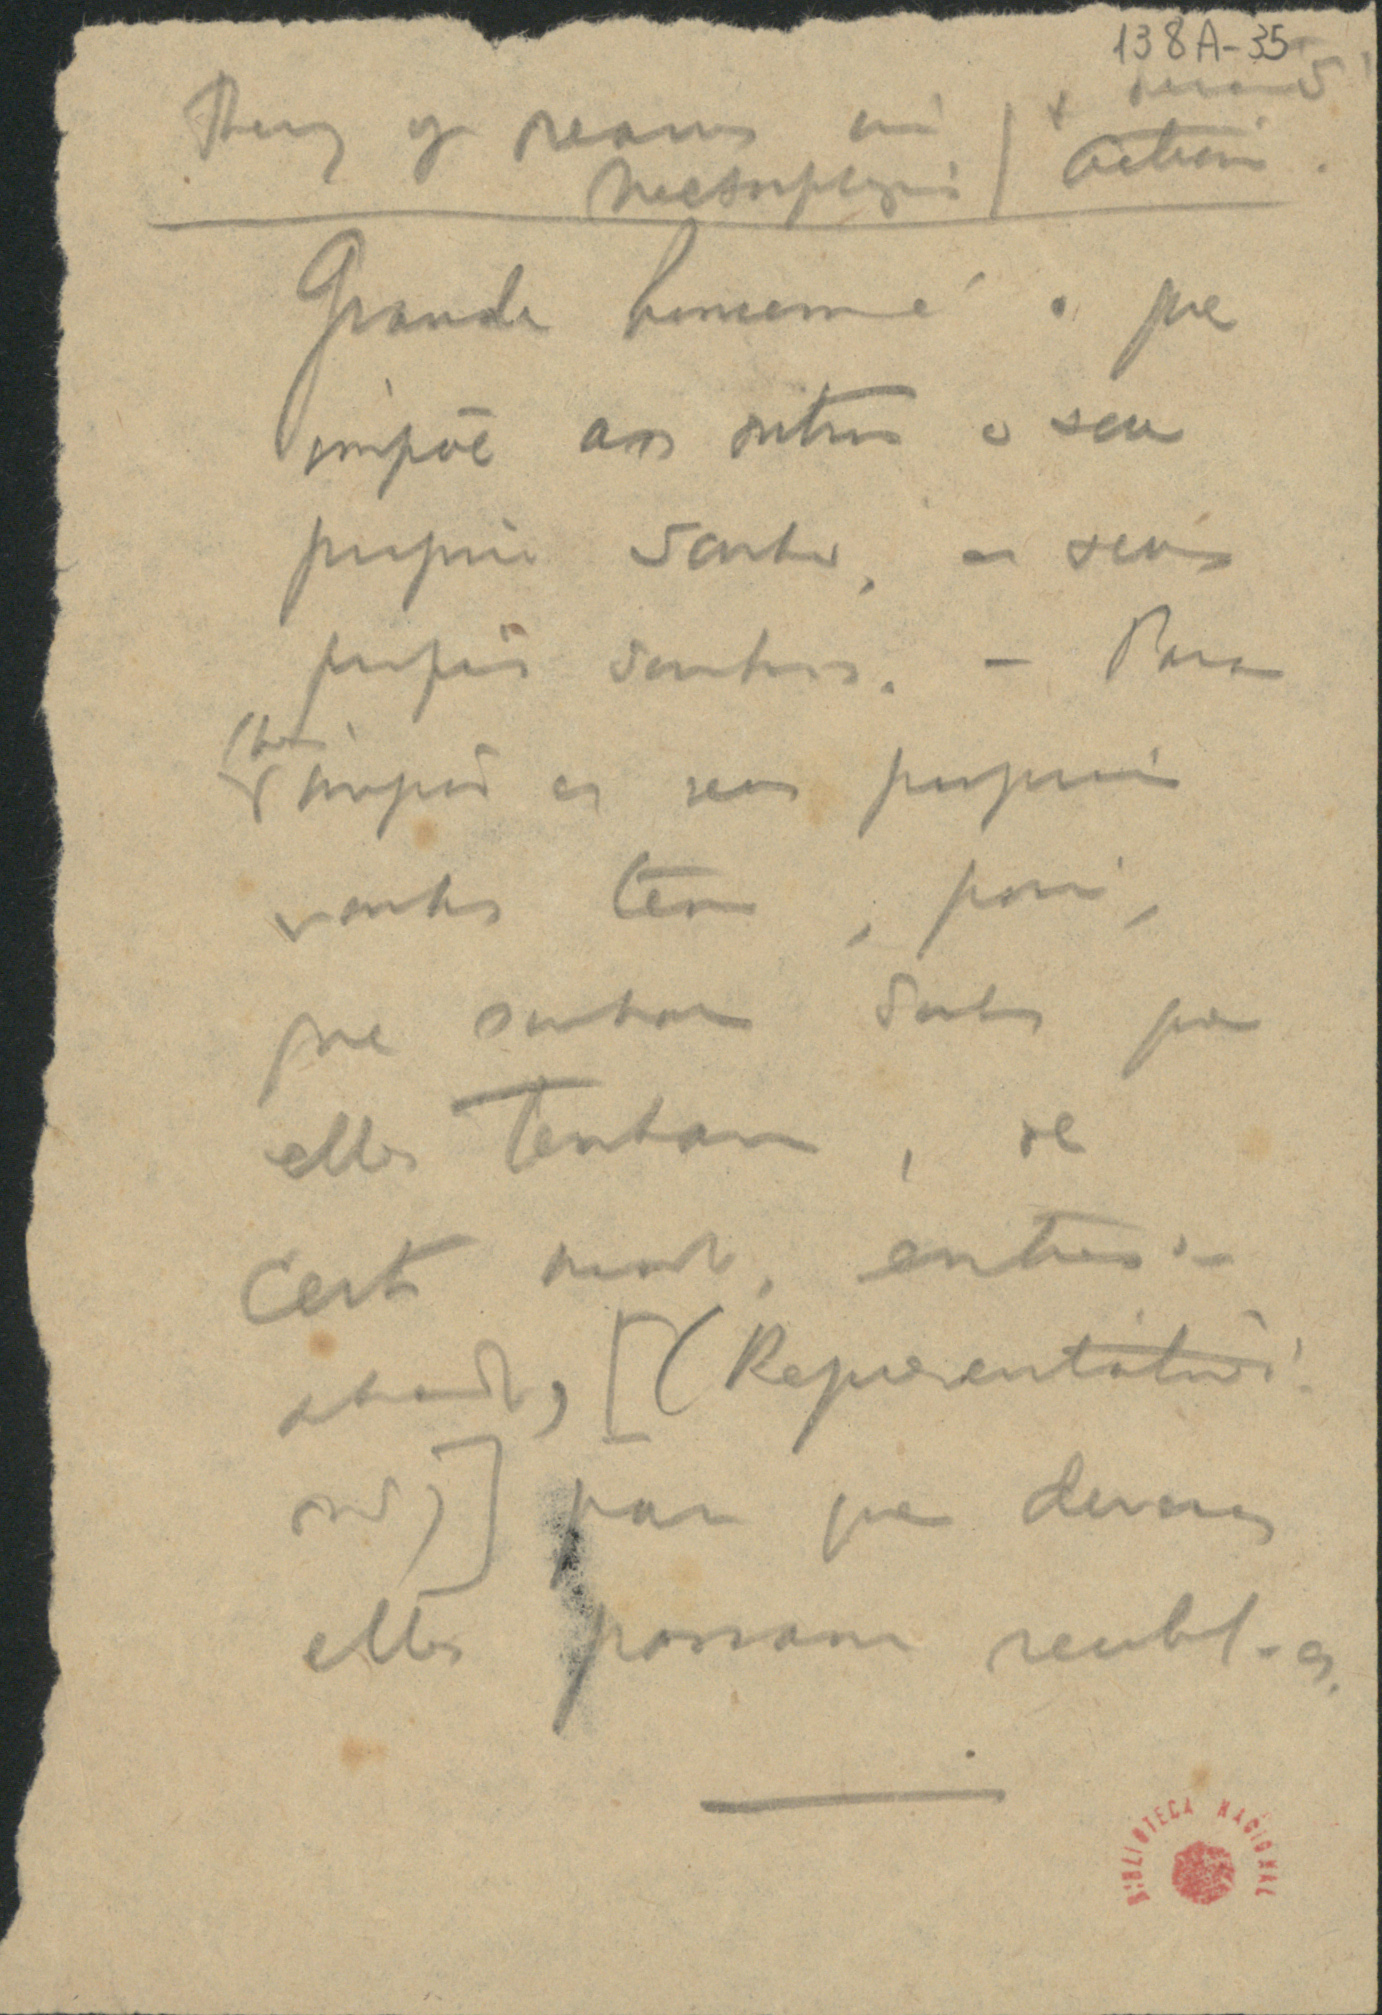 138A-35
Theory of dreams in
Metaphysics / action.
Grande homem é o que
impõe aos outros o seu
proprio sonho, os seus
proprios sonhos. — Para
impor os seus proprios
sonhos tem, pois,
que sonhar sonhos que
elles tenham, de
certo modo, entreso-
nhado, [(Representative
men)] para que deveras
elles possam recebel-os.
BIBLIOTECA NACIONAL